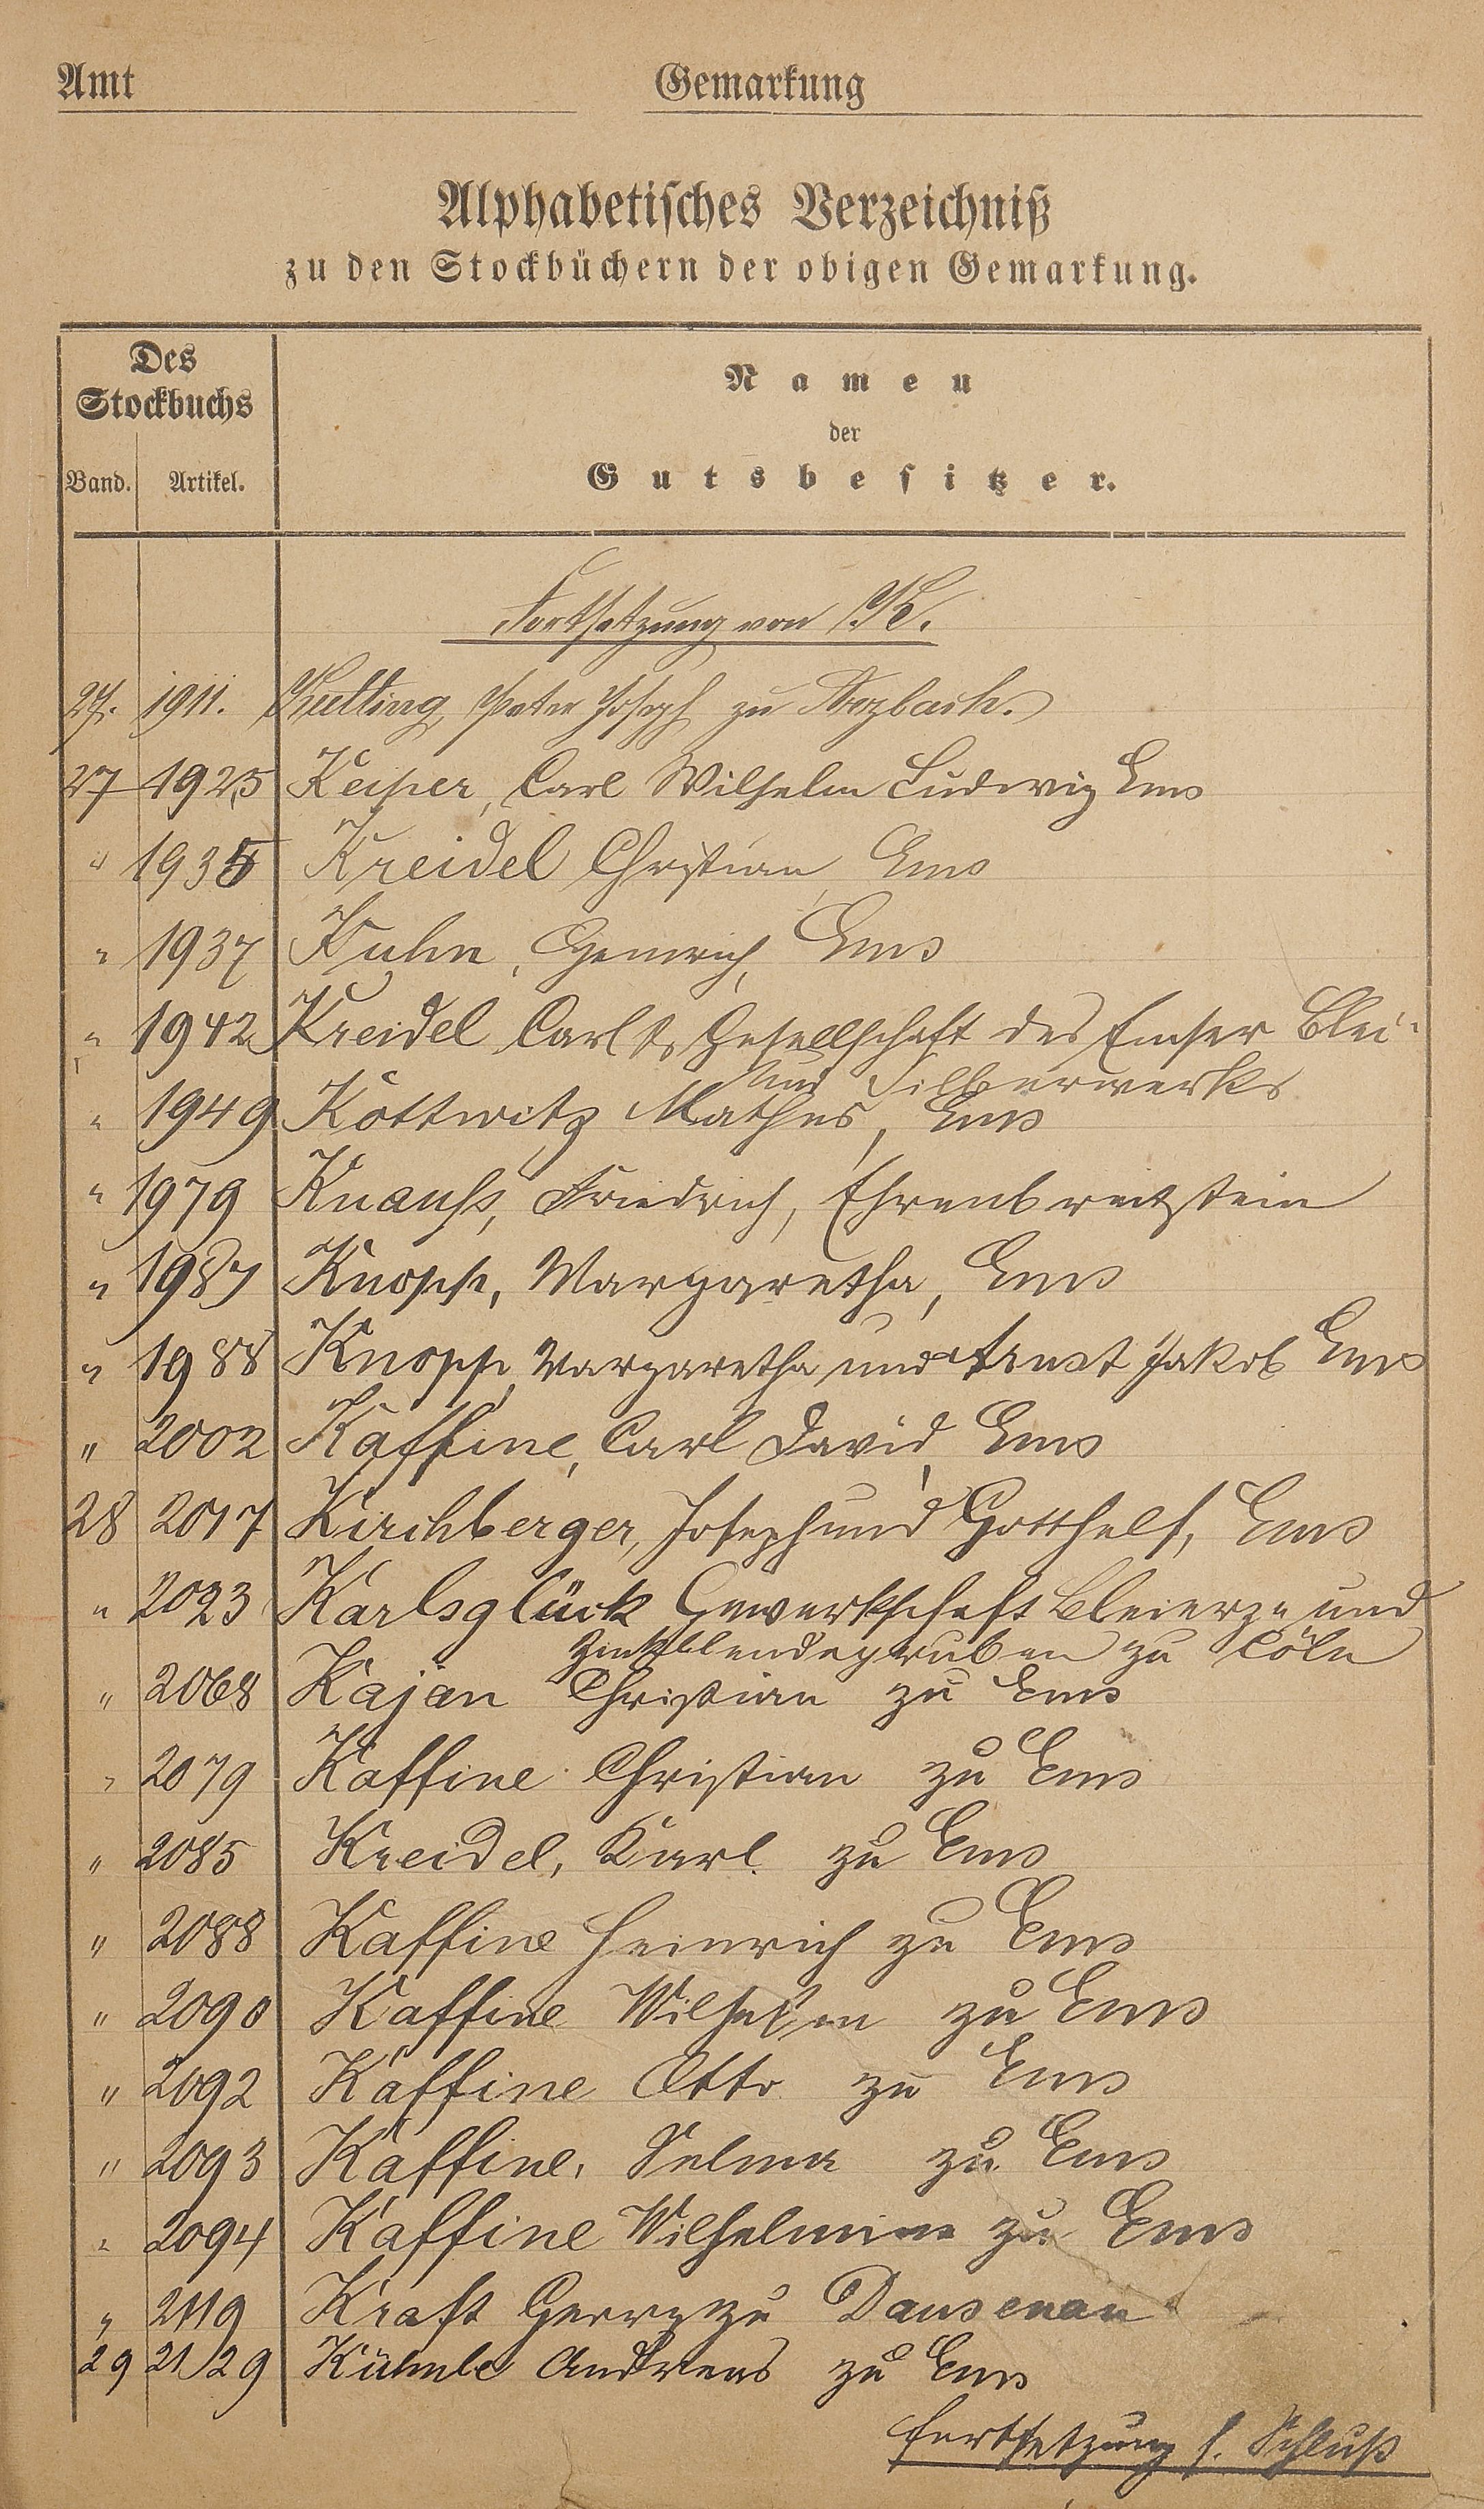 Amt Gemarkung
Alphabetisches Verzeichniß
zu den Stockbüchern der obigen Gemarkung.
Des
Stockbuchs
Band. Artikel.
Namen
der
Gutsbesitzer.
Fortsetzung von K.
27. 1911. Peter Joseph zu
27 1925 Keiper, Carl Wilhelm Ludwig Ems
" 1935 Kreidel Christian, Ems
" 1937 Kuhn, Heinrich, Ems
" 1942 Kreidel Carl & Gesellschaft des Emser Blei-
und Silberwerks
" 1949 Kottwitz Mathes, Ems
" 1979 Knauß, Friedrich, Ehrenbreitstein
" 1987 Knopp, Margaretha, Ems
" 1988 Knopp, Margaretha und Ernst Jakob Ems
" 2002 Kaffine, Carl David, Ems
28 2017 Kirchberger, Joseph und Gotthelf, Ems
" 2023 Karlsglück Gewerkschaft Bleierz- und
Zinkblendegruben zu Cöln
" 2068 Kajan Christian zu Ems
" 2079 Kaffine Christian zu Ems
" 2085 Kreidel, Karl zu Ems
" 2088 Kaffine Heinrich zu Ems
" 2090 Kaffine Wilhelm zu Ems
" 2092 Kaffine Otto zu Ems
" 2093 Kaffine, Selma zu Ems
" 2094 Kaffine Wilhelmine zu Ems
" 2119 Kraft Georg zu Dausenau
29 2129 Kühnle Andreas zu Ems
Fortsetzung s. Schluß